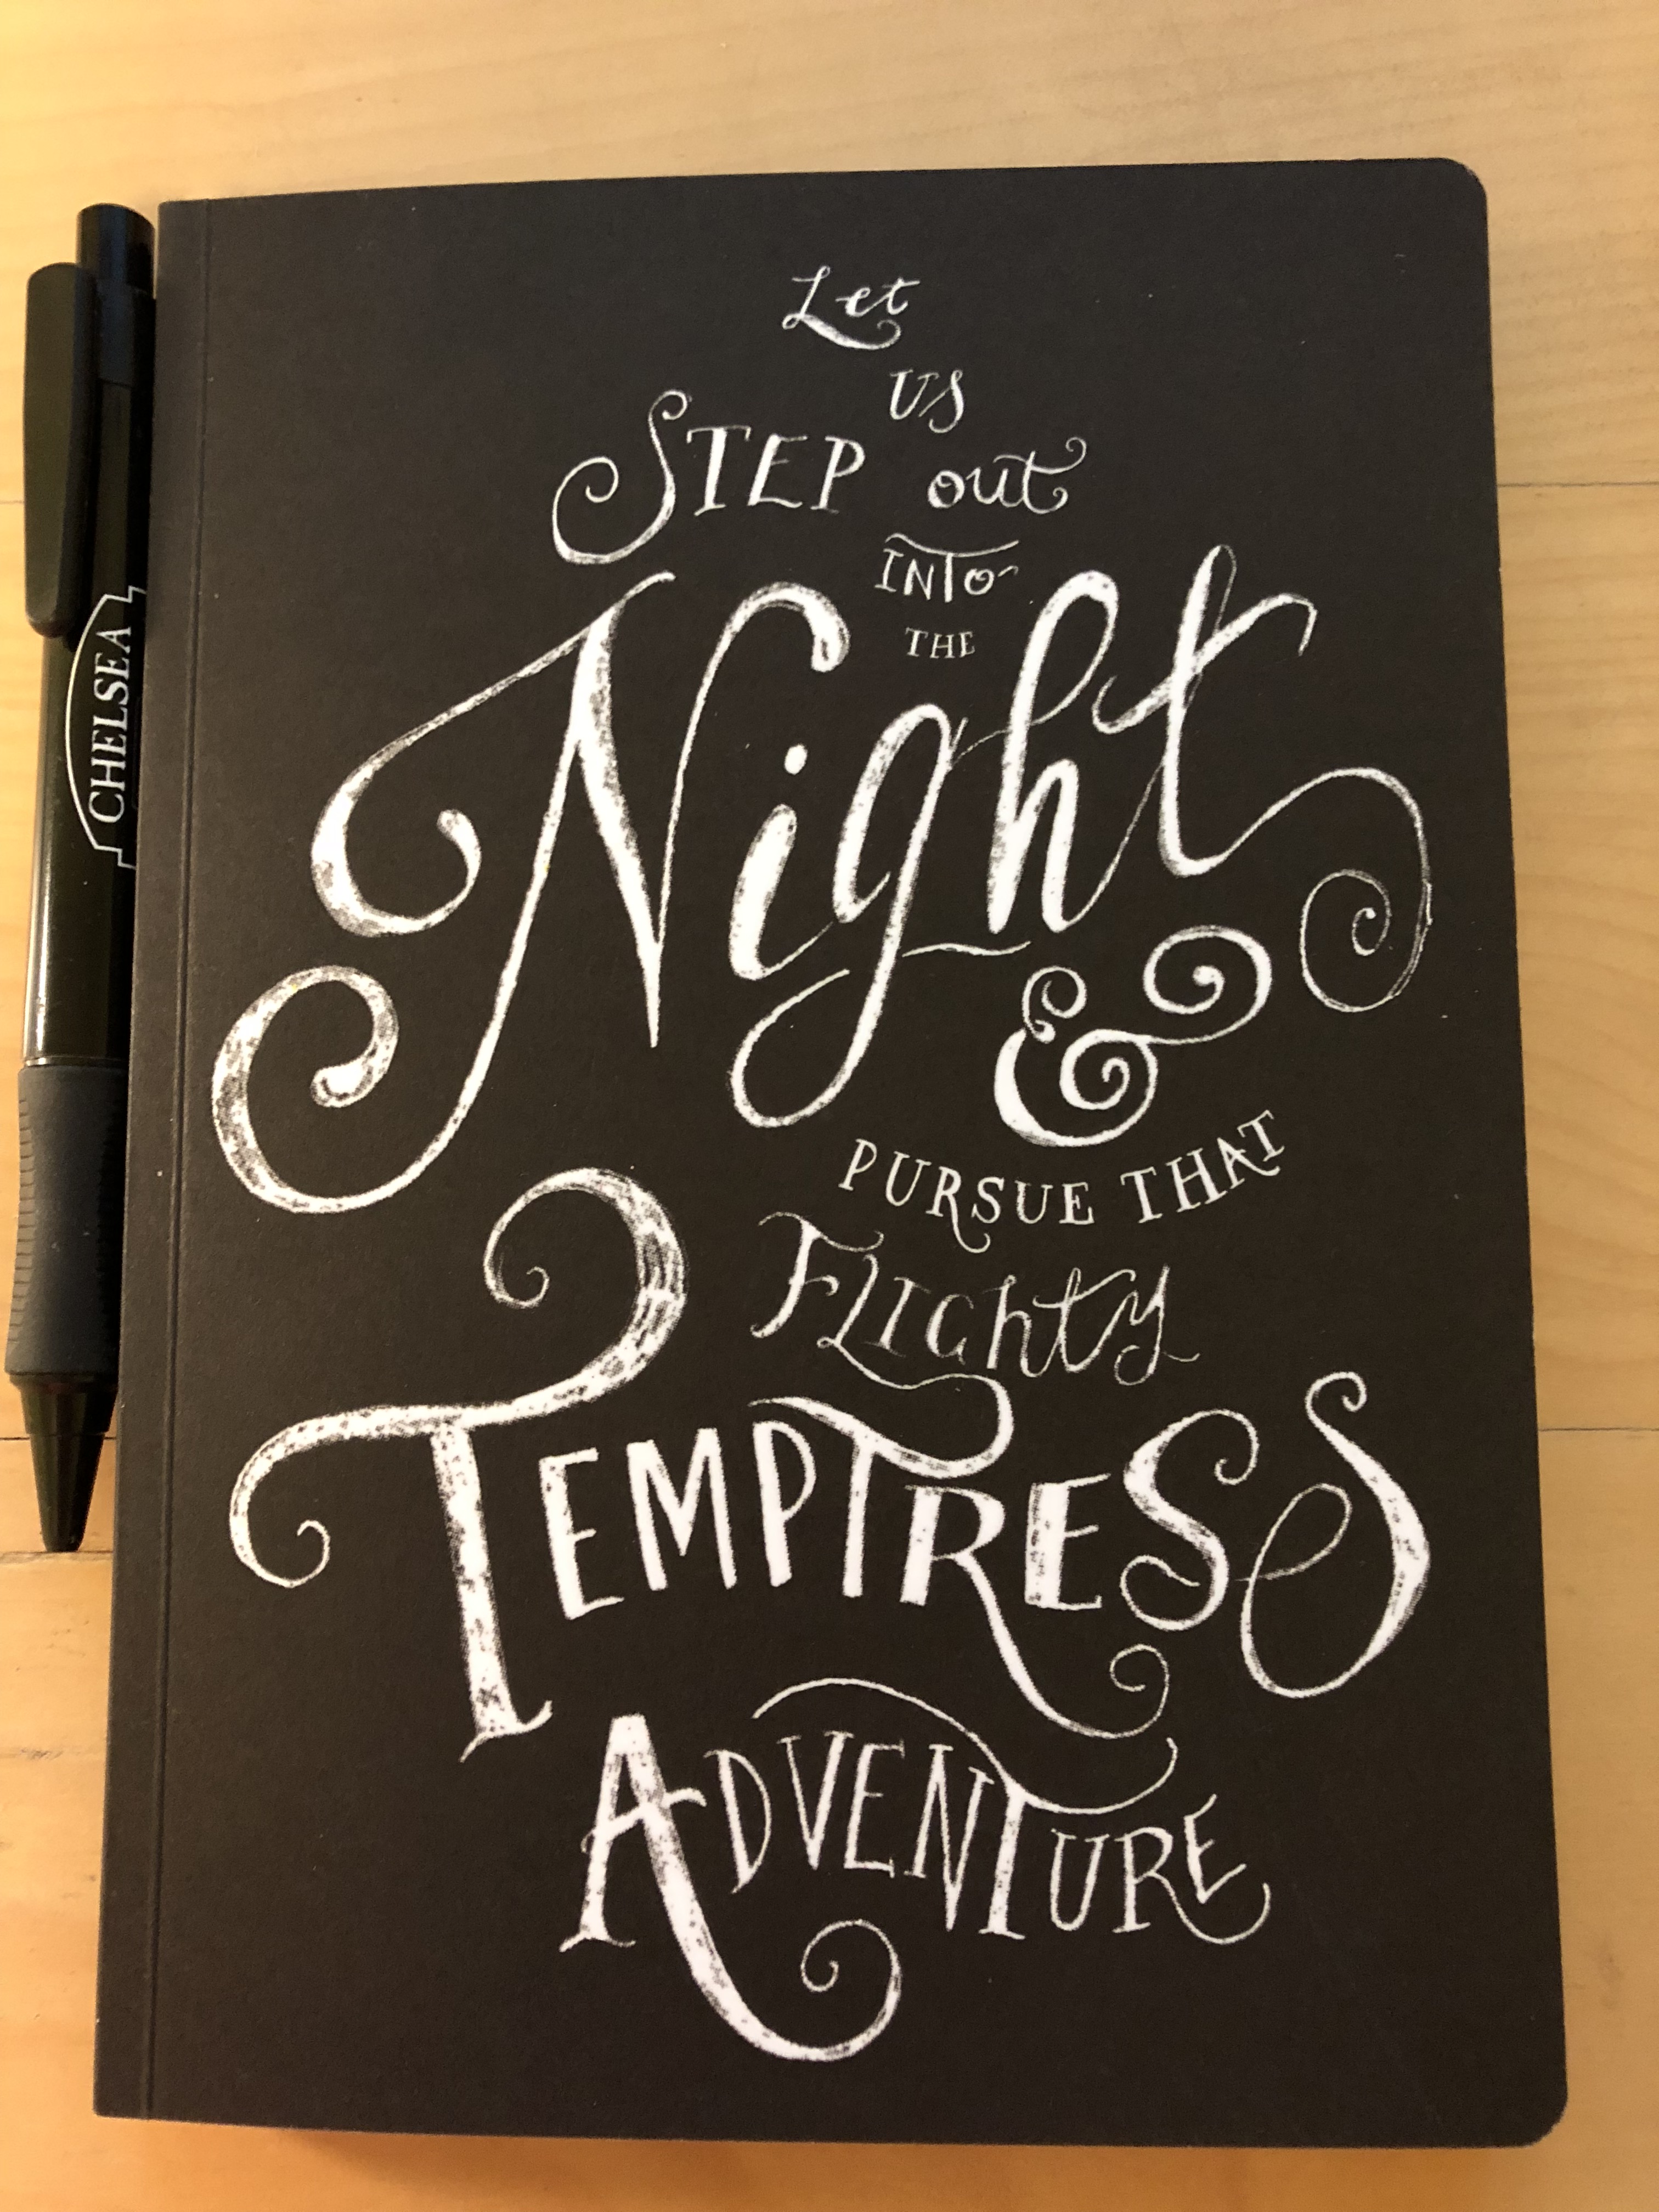 Let
us
STEP out
INTO
THE
Night
&
PURSUE THAT
FLIGHTY
TEMPTRESS
ADVENTURE
CHELSEA